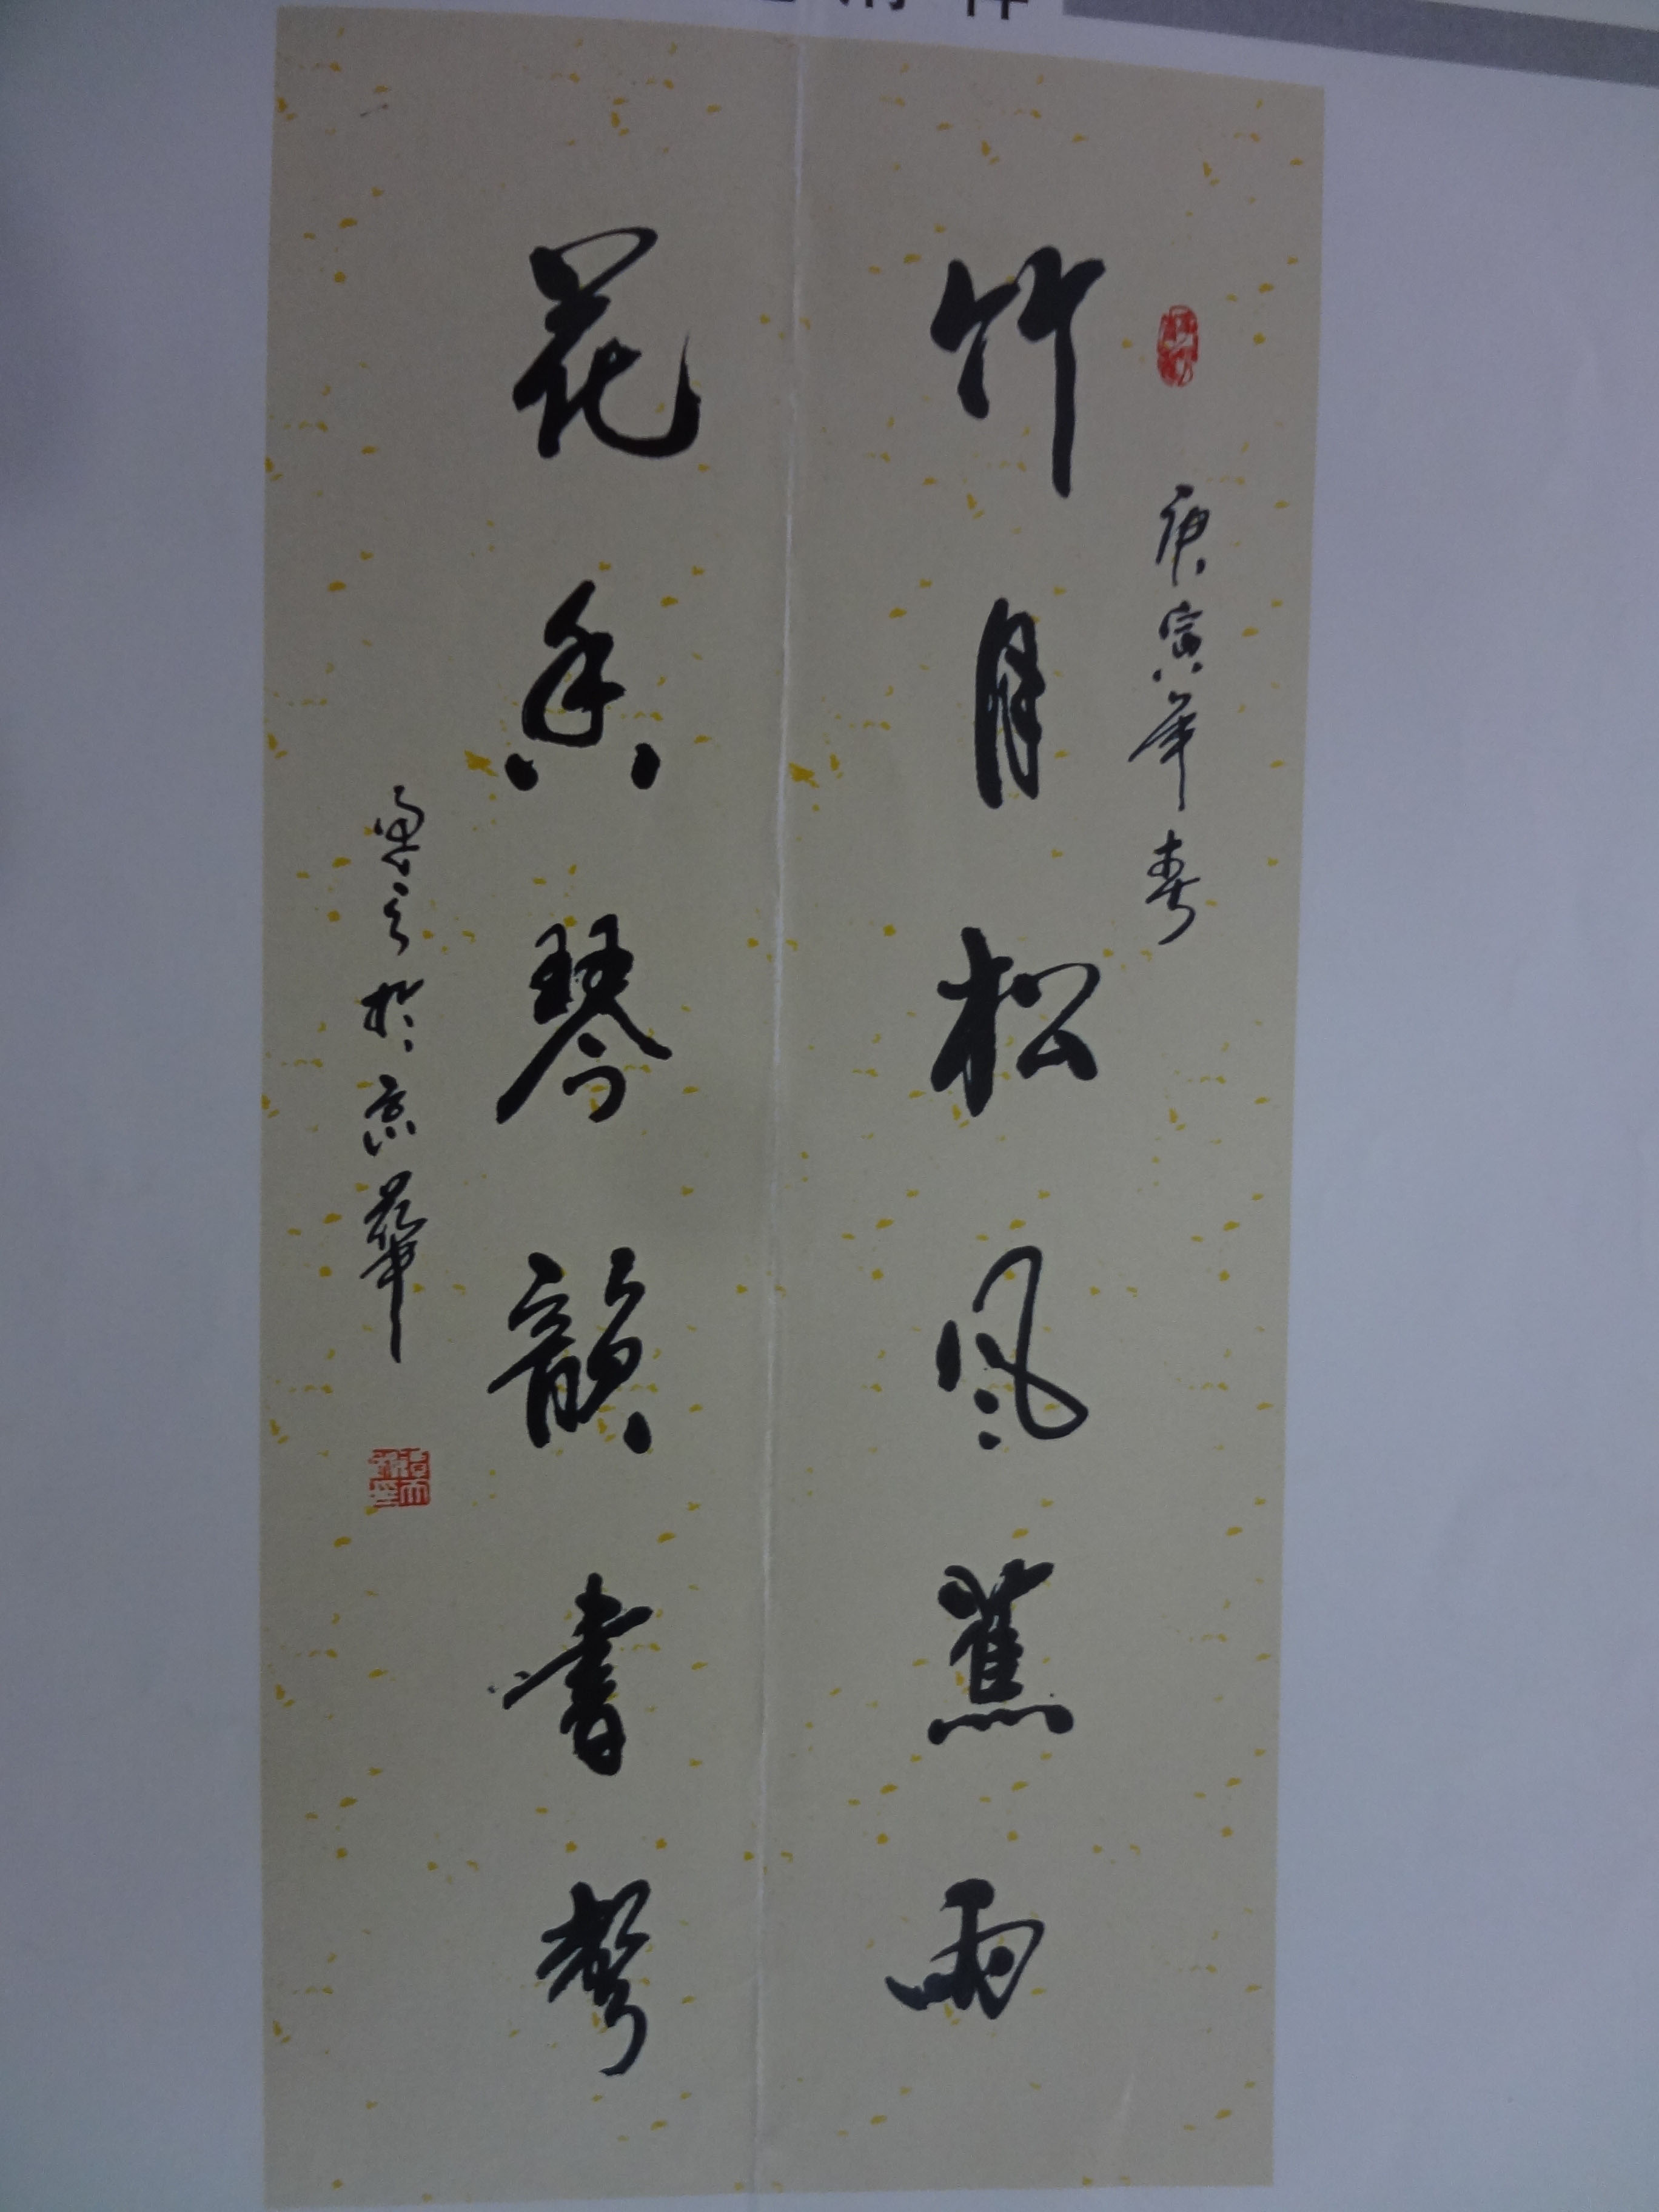 庚寅年春
竹月松风蕉雨
花香琴韻書聲
於京華